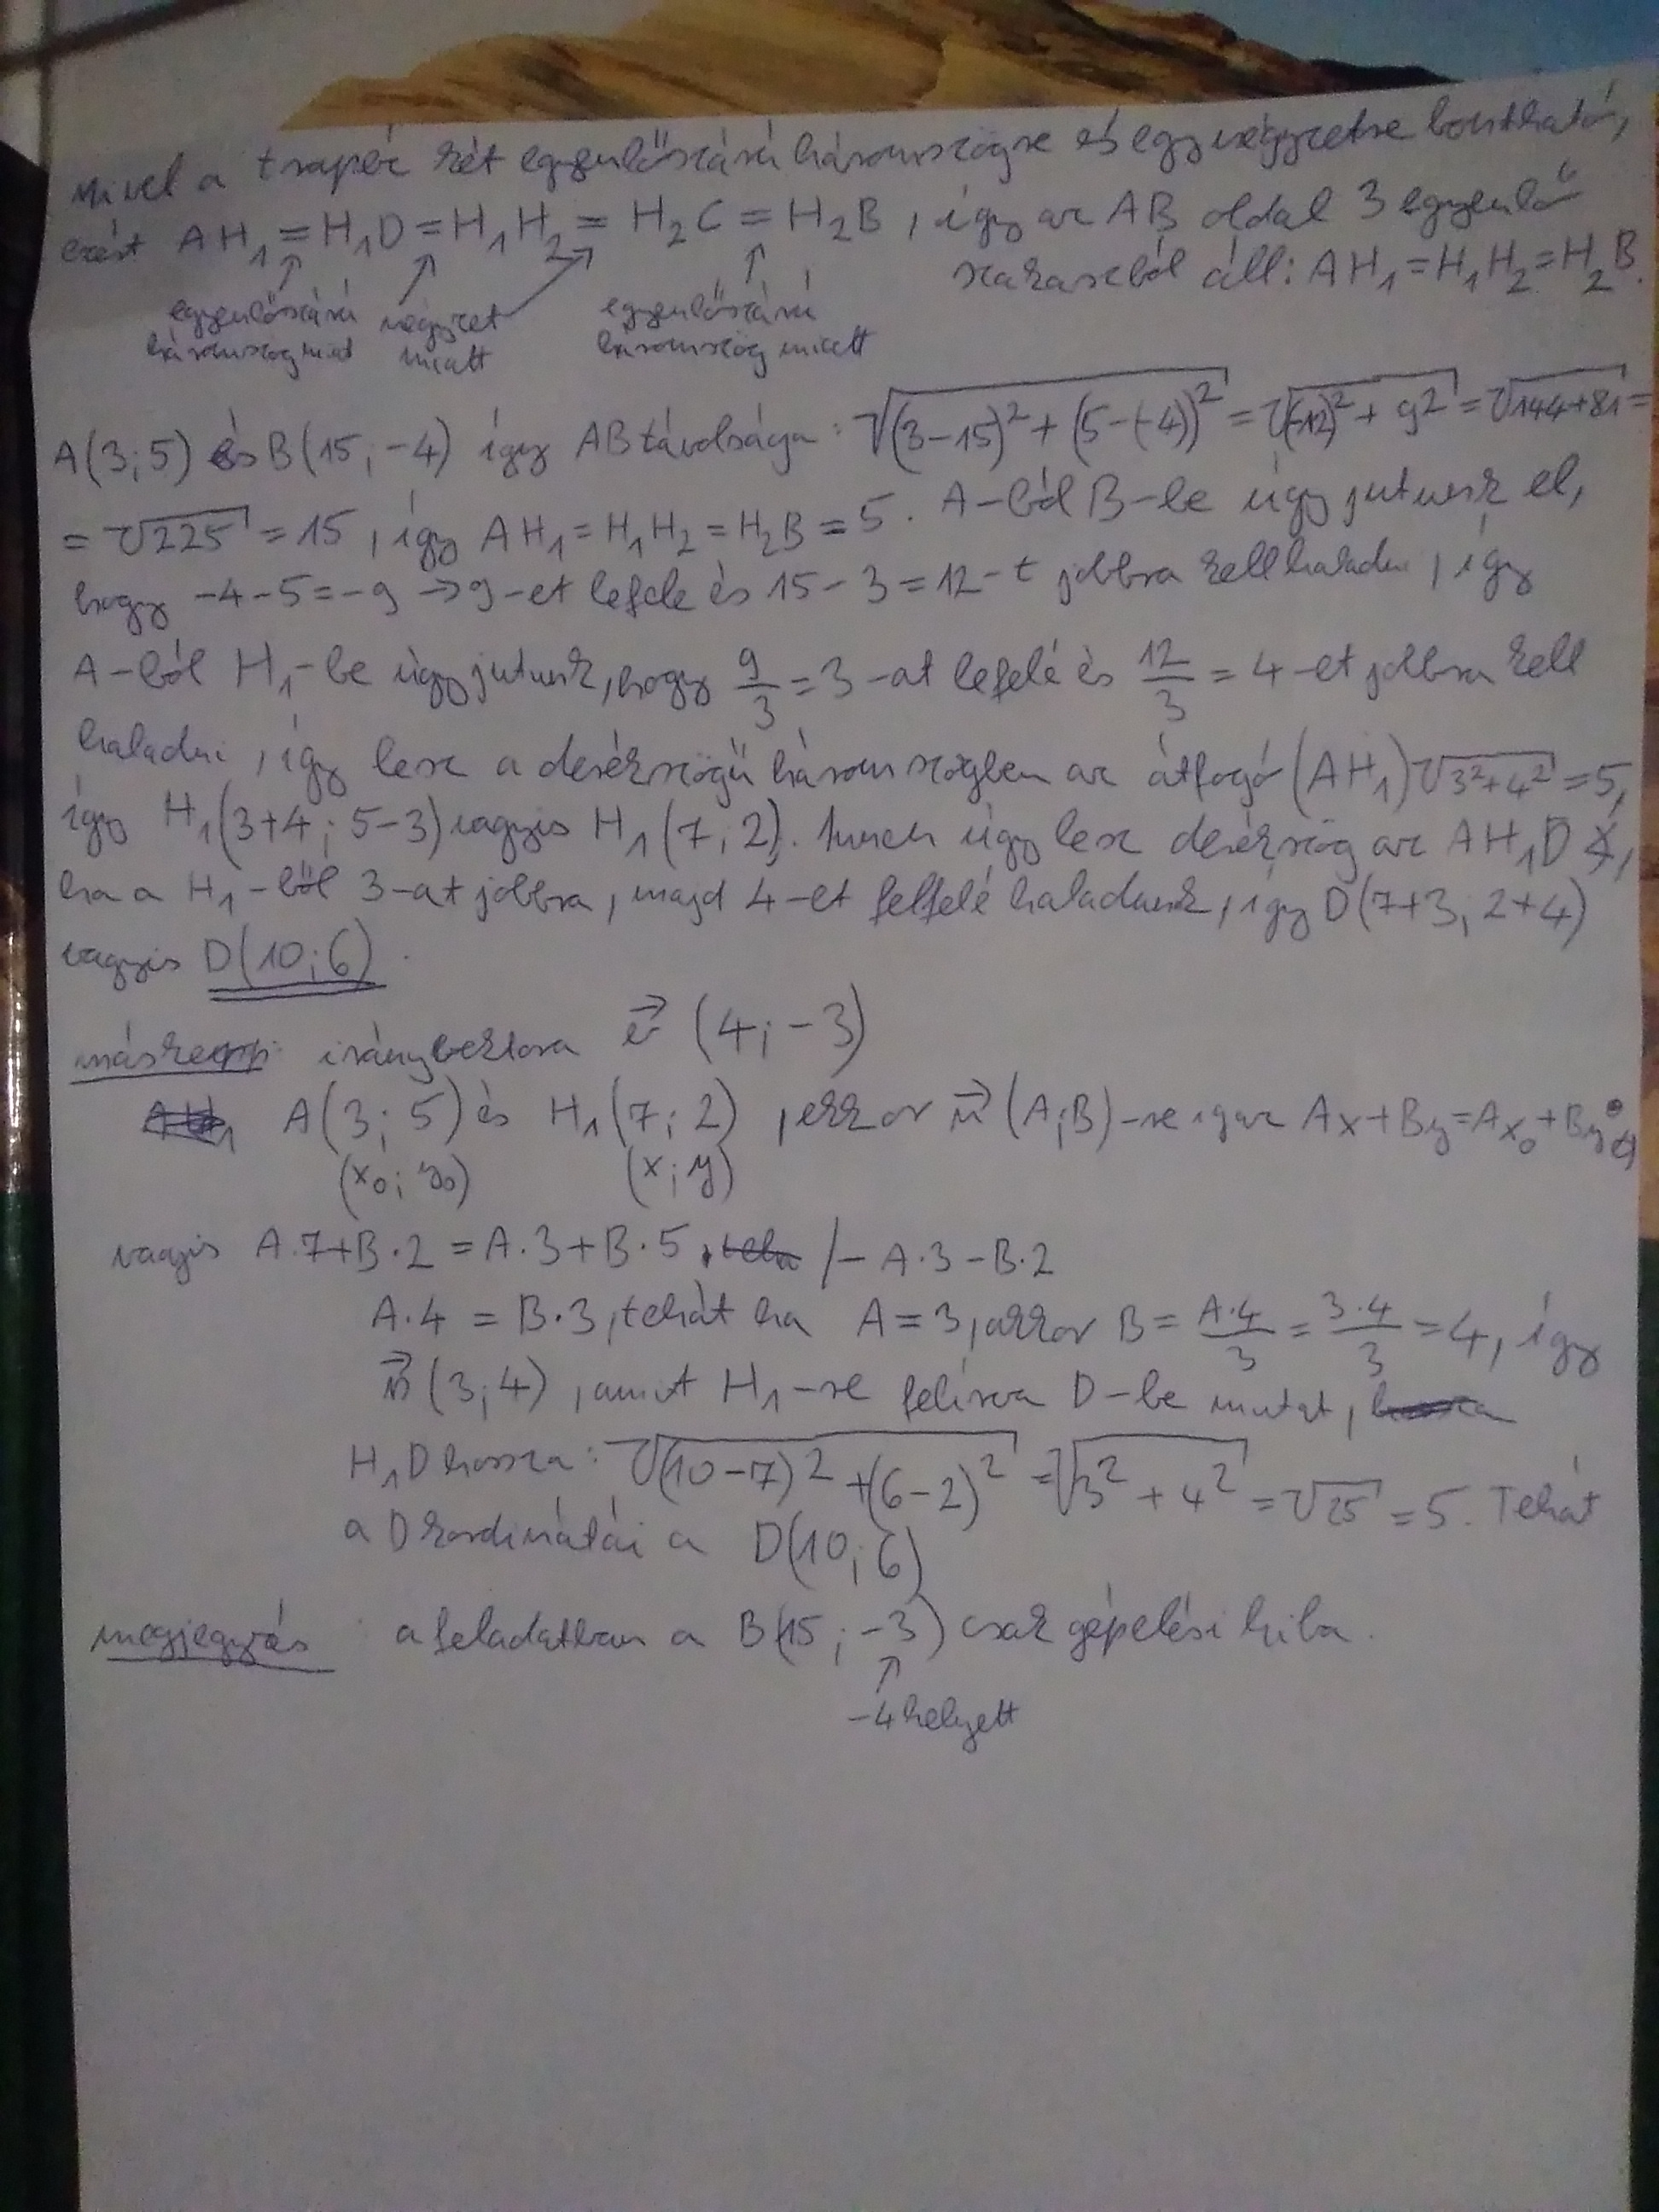 Mivel a trapéz két egyenlőszárú háromszögre és egy négyzetre bontható,
ezért AH₁ = H₁D = H₁H₂ = H₂C = H₂B, így az AB oldal 3 egyenlő
szakaszból áll: AH₁ = H₁H₂ = H₂B.
egyenlőszárú négyzet egyenlőszárú
háromszög miatt miatt háromszög miatt
A(3;5) és B(15;-4) így AB távolsága: √((3-15)²+(5-(-4))²) = √((-12)²+9²) = √(144+81) =
= √225 = 15, így AH₁ = H₁H₂ = H₂B = 5. A-ból B-be úgy jutunk el,
hogy -4-5=-9 → 9-et lefele és 15-3=12-t jobbra kell haladni, így
A-ból H₁-be úgy jutunk, hogy 9/3 = 3-at lefelé és 12/3 = 4-et jobbra kell
haladni, így lesz a derékszögű háromszögben az átfogó (AH₁) √(3²+4²) = 5,
így H₁(3+4; 5-3) vagyis H₁(7;2). Innen úgy lesz derékszög az AH₁D∡,
ha a H₁-ből 3-at jobbra, majd 4-et felfelé haladunk, így D(7+3; 2+4)
vagyis D(10;6).
másképp: irányvektora v⃗ (4;-3)
A(3;5) és H₁(7;2), ekkor n⃗ (A;B)-re igaz Ax+By=Ax₀+By₀
(x₀;y₀) (x;y)
vagyis A·7+B·2 = A·3+B·5 /-A·3-B·2
A·4 = B·3, tehát ha A=3, akkor B = A·4/3 = 3·4/3 = 4, így
n⃗ (3;4), amit H₁-re felírva D-be mutat,
H₁D hossza: √((10-7)²+(6-2)²) = √(3²+4²) = √25 = 5. Tehát
a D koordinátái a D(10;6)
megjegyzés: a feladatban a B(15;-3) csak gépelési hiba.
-4 helyett